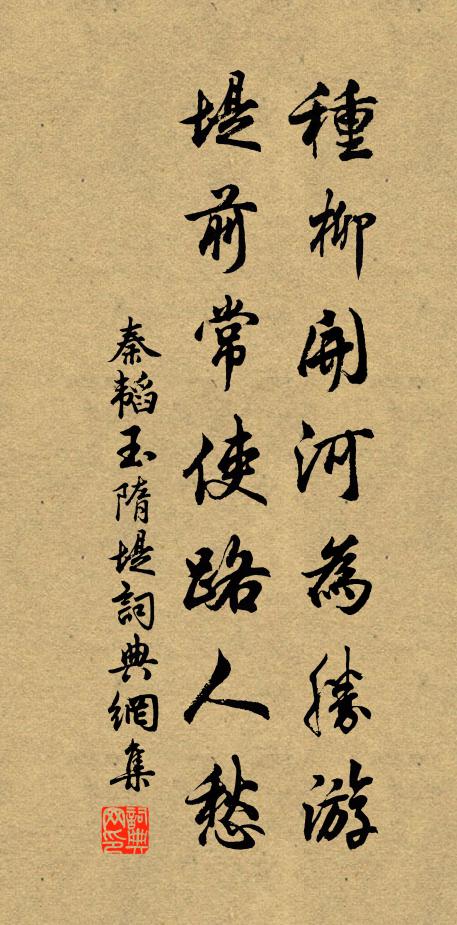 種柳開河為勝游
堤前常使路人愁
秦韜玉隋堤詞典網集
詞典网印